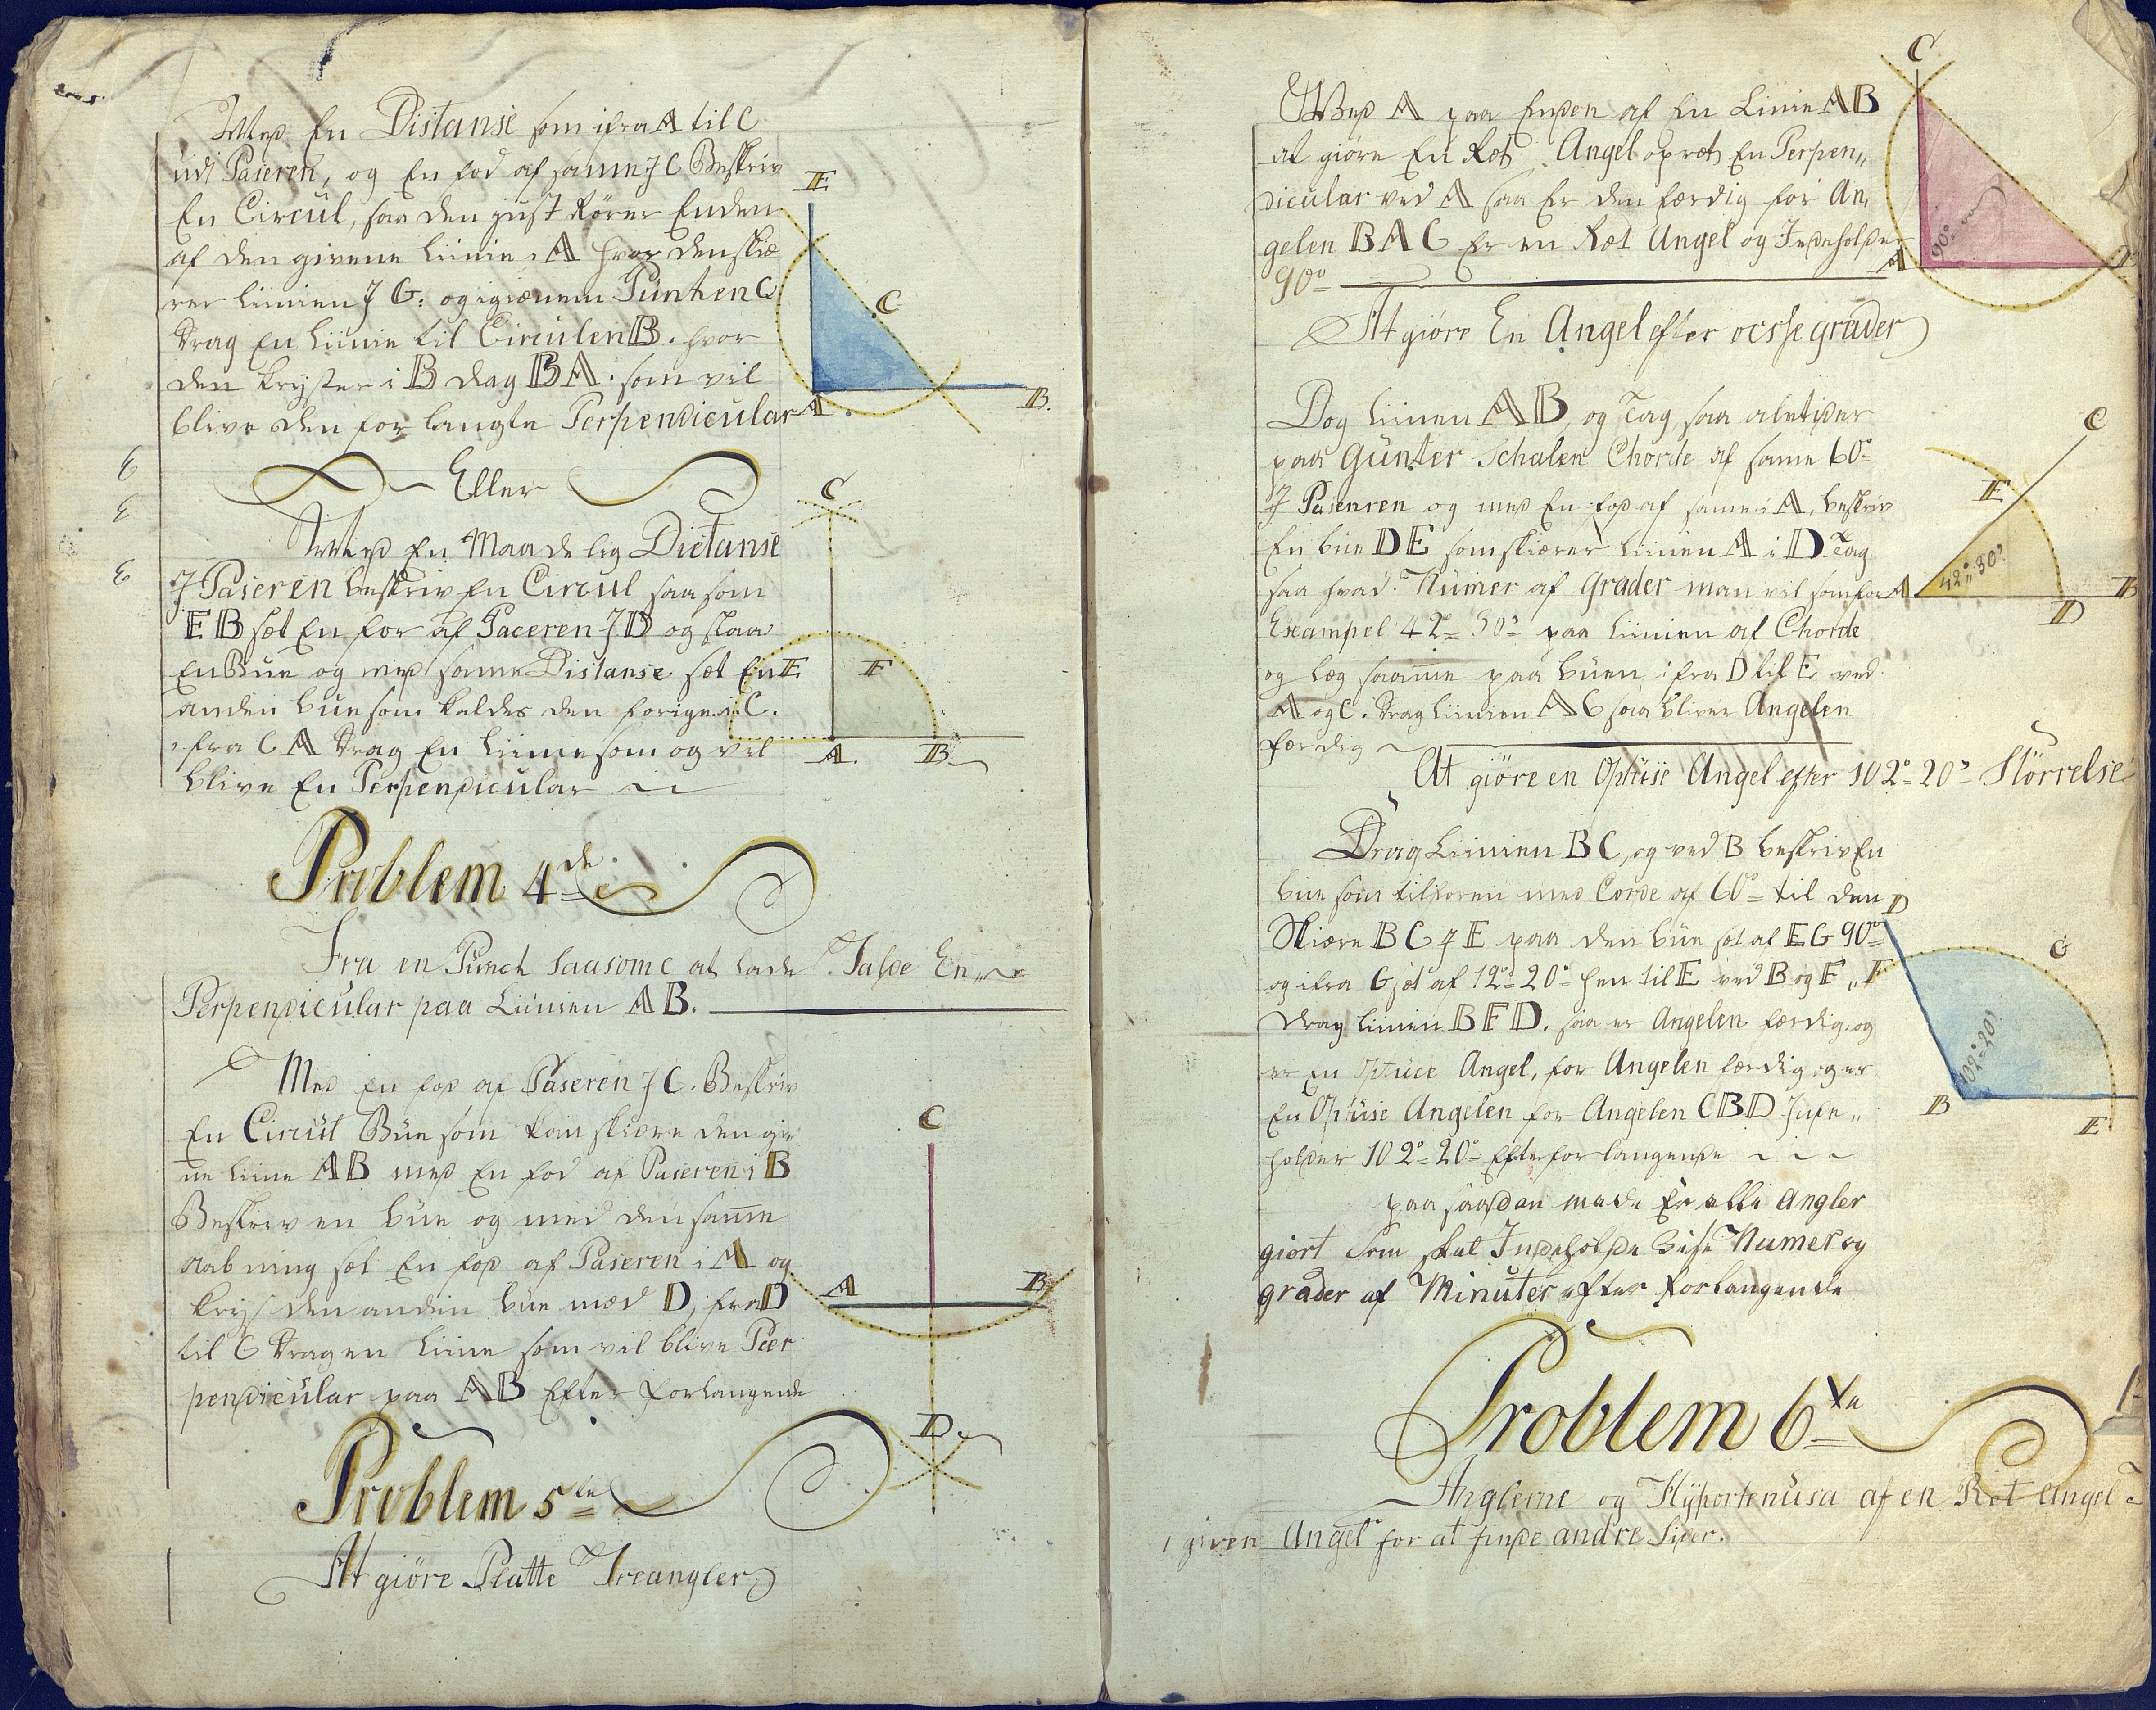 Med En Distanse som ifra A til C
udi Paseren, og En fod af samme J C Beskriv
En Circul, saa den just Rører Enden
af den givene Linie A hvor den skiæ
rer Linien J G: og igiænem Punten C
drag En Linie til Circulen B. hvor
den krydser i B drag BA. som vil
blive den for langte Perpendicular
E
C
B.
A.
Eller
Med En Maadelig Dictanse
J Paseren beskriv En Circul saa som
EB sæt En for af Paceren J D og slaa
En Bue og med same Distanse sæt En
anden bue som kaldes den forige i C.
ifra C A Drag En Linie som og vil
blive En Perpendicular
C
E F
A. B
Problem 4de
Fra en Punct saasom C at lade Falde En
Perpendicular paa Linien AB.
Med En fod af Paseren J C. Beskriv
En Circul Bue som kan skiære den giv
ne Linie AB med En fod af Paseren i B
Beskriv en bue og med den samme
aabning sæt En fod af Paseren i A og
kryds den anden bue med D, fra D
til C Drag en Linie som vil blive Per
pendicular paa AB Efter forlangende
C
A B
D
Problem 5te
At giöre Platte Treangler
Ved A paa Enden af En Linie AB
at giöre En Ret Angel opret En Perpen„
dicular ved A saa Er den færdig for An„
gelen BAC Er en Ræt Angel og Indeholder
90°
C
90°
A
At giöre En Angel efter grader
Dog Linien AB, og Tag saa aletider
paa Gunter Schalen Chorde af same 60°
J Paseren og med En fod af same i A, beskriv
En bue DE som skiærer Linien A i D. Tag
saa hvad Numer af grader man vil som for
Exampel 42° 30° paa Linien af Chorde
og læg saamme paa buen ifra D til E ved
A og C. Drag Linien AC saa bliver Angelen
færdig
C
E
42° 30'
A D B
At giöre en Optuse Angel efter 102° 20° Störrelse
Drag Linien BC, og ved B beskriv En
bue som tilforen med Corde af 60° til den
Skiære BC J E paa den bue sæt af EG 90°
og ifra G sæt af 12° 20° hen til E ved B og F„
drag Linien BFD. saa er Angelen færdig og
er En Optuce Angel, for Angelen færdig og er
En Optuse Angelen for Angelen CBD Inde„
holder 102° 20° Efter forlangende
D
G
F
102° 20'
B
E
paa saadan made Er alle Angler
giort som skal Indeholde visse Numer og
grader af Minuter efter forlangende
Problem 6te
Anglerne og Hÿportenusa af en Ret Angel
given Angel for at finde andre Sider.